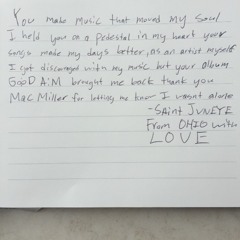 You make music that moved my soul
I held you on a pedestal in my heart your
songs made my days better, as an artist myself
I got discouraged with my music but your album
GOOD A:M brought me back thank you
Mac Miller for letting me know I wasnt alone
-SAINT JVNEYE
From OHIO with
LOVE